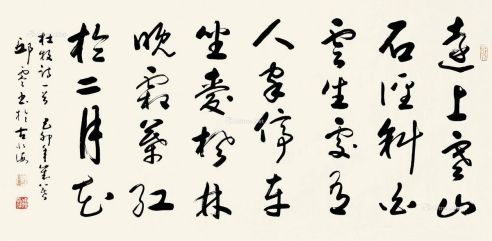 遠上寒山
石徑斜白
雲生處有
人家停車
坐愛楓林
晚霜葉紅
於二月花
杜牧诗一首 己卯年
書於古